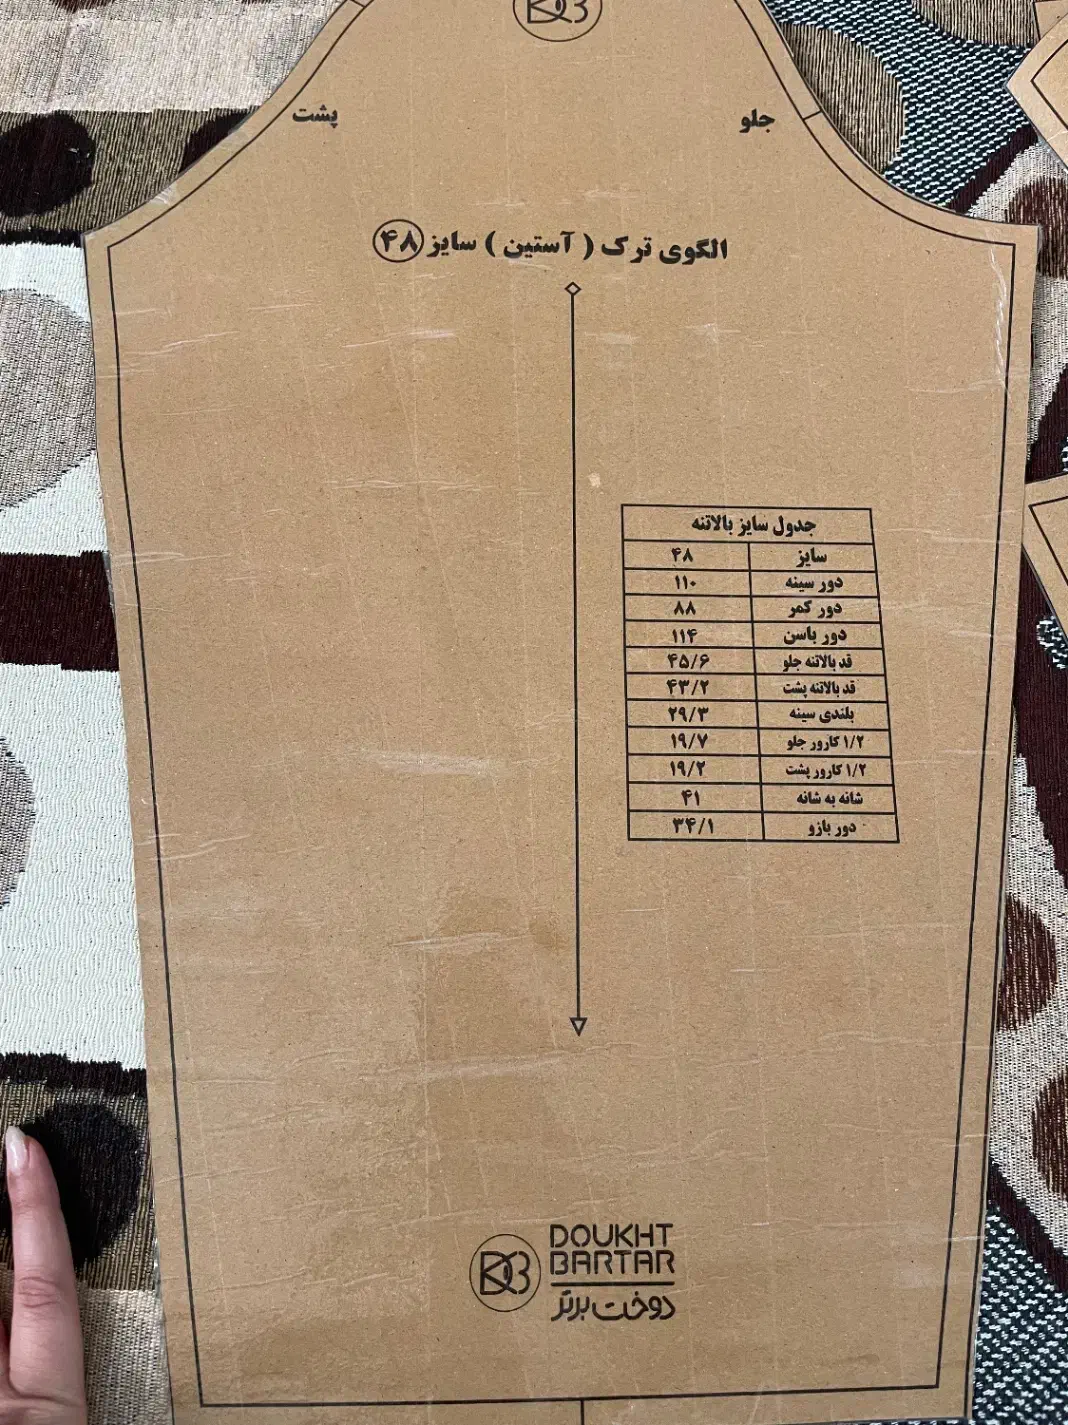 پشت
جلو
الگوی ترک ( آستین ) سایز ۴۸
جدول سایز بالاتنه
سایز ۴۸
دور سینه ۱۱۰
دور کمر ۸۸
دور باسن ۱۱۴
قد بالاتنه جلو ۴۵/۶
قد بالاتنه پشت ۴۳/۲
بلندی سینه ۲۹/۳
۱/۲ کارور جلو ۱۹/۷
۱/۲ کارور پشت ۱۹/۲
شانه به شانه ۴۱
دور بازو ۳۴/۱
DOUKHT
BARTAR
دوخت برتر